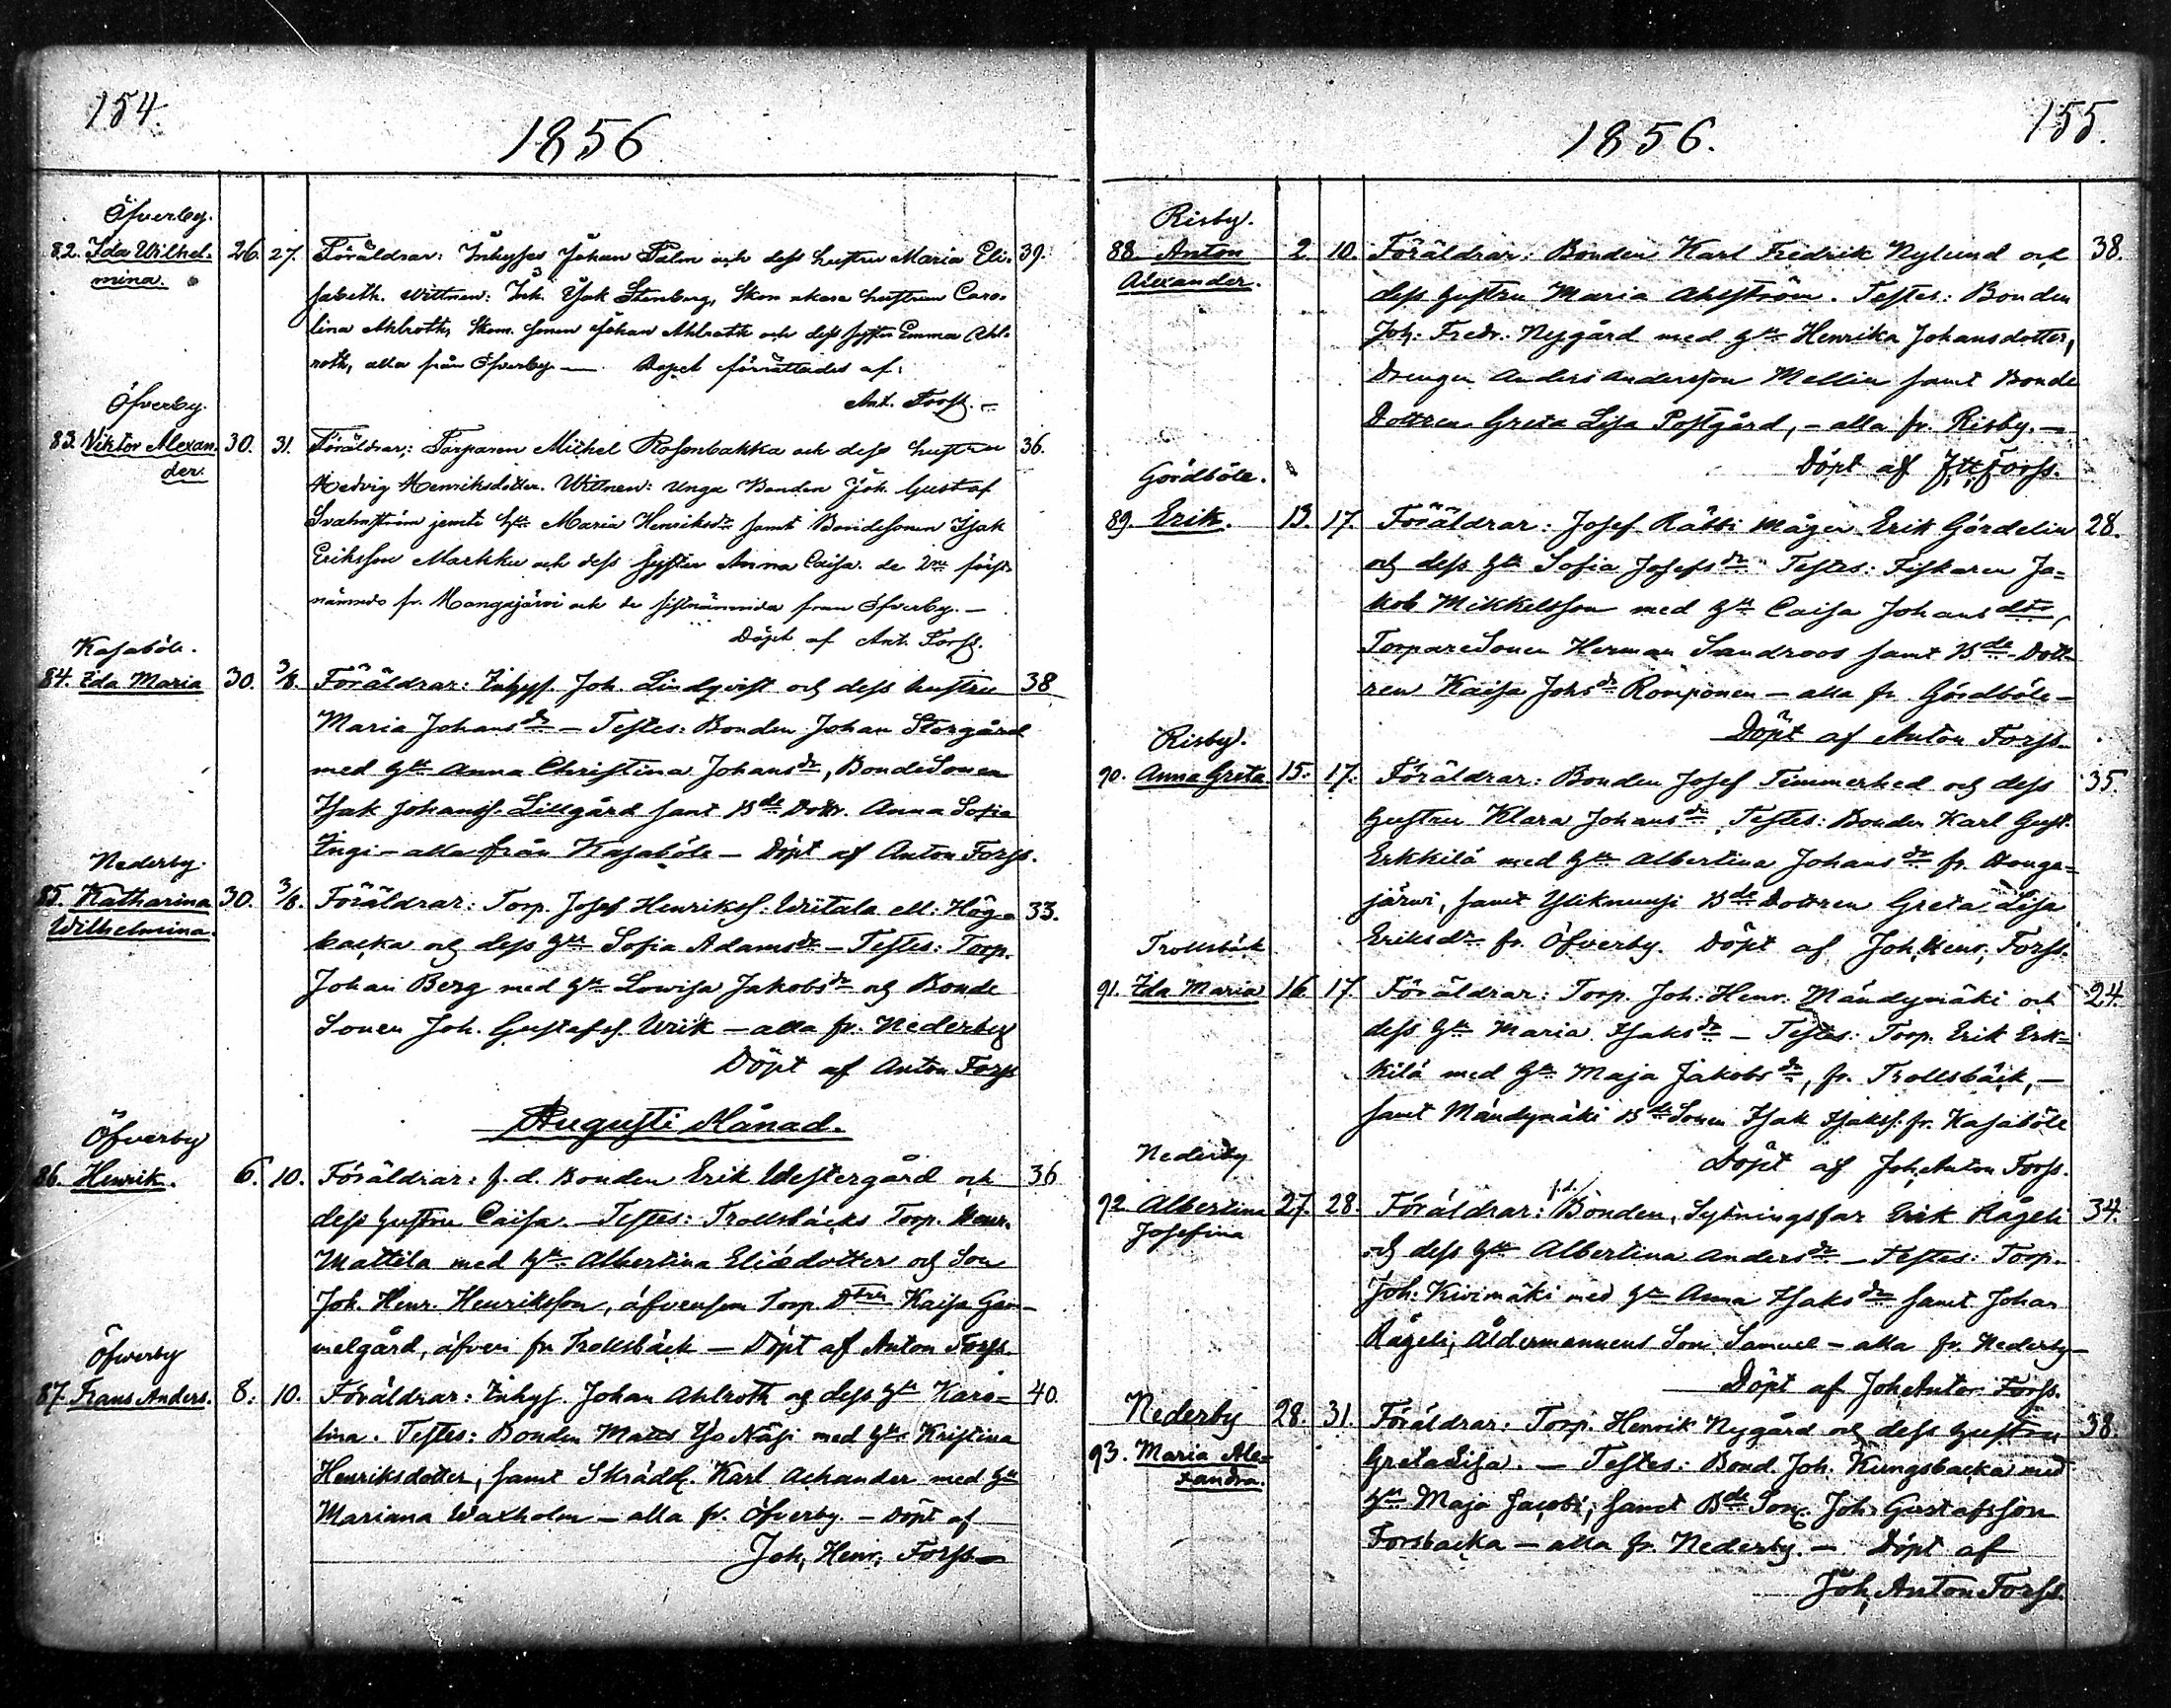 154.
1856
Öfverby.
82. Ida Wilhel- 26. 27. Föräldrar: Inhyses Johan Palm och dess hustru Maria Eli- 39.
mina. sabeth. Wittnen: Inh. Isak Stenberg, Skom akare hustrun Caro-
lina Ahlroth, Skom. sonen Johan Ahlroth och dess syster Emma Ahl-
roth, alla från Öfverby — Dopet förrättades af:
Ant. Forss. —
Öfverby.
83. Viktor Alexan- 30. 31. Föräldrar: Torparen Mikhel Rosenbakka och dess hustru 36.
der. Hedvig Henriksdotter. Wittnen: Unga Bonden Joh. Gustaf
Svahnström jemte h:u Maria Henriksdr samt Bondesonen Isak
Eriksson Markku och dess syster Anna Caisa. de 2ne först-
nämnde fr. Mangajärvi och de sistnämnda från Öfverby. —
Döpt af Ant. Forss.
Kasaböle.
84. Ida Maria 30. 3/8. Föräldrar: Inhys. Joh. Lindqvist och dess hustru 38
Maria Johansdr — Testes: Bonden Johan Storgård
med hu Anna Christina Johansdr, BondeSonen
Isak Johanss. Lillgård samt Bde Dottr. Anna Sofia
Ingi — alla från Kasaböle — Döpt af Anton Forss.
Nederby.
85. Katharina 30. 3/8. Föräldrar: Torp. Josef Henrikss: Wiitala ell: Hög- 33.
Wilhelmina. backa och dess hu Sofia Adamsdr — Testes: Torp.
Johan Berg med hu Lowisa Jakobsdr och Bonde
Sonen Joh. Gustafss. Urik — alla fr. Nederby
Döpt af Anton Forss
Augusti Månad.
Öfverby
86. Henrik. 6. 10. Föräldrar: f. d. Bonden Erik Westergård och 36
dess hustru Caisa. — Testes: Trollsbäcks Torp. Henr.
Mattila med hu Albertina Eliædotter och Son
Joh. Henr. Henriksson, äfvensom Torp. Dtren Kaisa Gam-
melgård, äfven fr. Trollsbäck — Döpt af Anton Forss.
Öfverby
87. Frans Anders. 8. 10. Föräldrar: Inhys. Johan Ahlroth och dess hu Karo- 40.
lina. Testes: Bonden Matts Iso Näsi med hu Kristina
Henriksdotter, samt Skrädd. Karl Achander med hu
Mariana Waxholm — alla fr. Öfverby. — Döpt af
Joh. Henr. Forss —
155.
1856.
Risby.
88. Anton 2. 10. Föräldrar: Bonden Karl Fredrik Nylund och 38.
Alexander. dess hustru Maria Ahlström. Testes: Bonden
Joh: Fredr: Nygård med hu Henrika Johansdotter,
Drengen Anders Andersson Mellin samt Bonde
Dottren Greta Lisa Postgård, — alla fr. Risby. —
Döpt af Forss.
Gördböle.
89. Erik. 13. 17. Föräldrar: Josef Rätti mågen Erik Gördelin 28.
och dess hu Sofia Josefsdr Testes: Fiskaren Ja-
kob Mikkelsson med hu Caisa Johansdtr,
TorpareSonen Herman Sandroos samt Bde-Dott-
ren Kaisa Johsdr Römponen — alla fr. Gördböle —
Döpt af Anton Forss.
Risby.
90. Anna Greta 15. 17. Föräldrar: Bonden Josef Timmerhed och dess 35.
hustru Klara Johansdr. Testes: Bonden Karl Gust.
Erkkilä med hu Albertina Johansdr fr. Honga-
järwi, samt Yliknuusi Bde Dottren Greta Lisa
Eriksdr fr. Öfverby. Döpt af Joh, Henr, Forss.
Trollsbäck
91. Ida Maria 16 17. Föräldrar: Torp. Joh: Henr. Mändymäki och 24.
dess hu Maria Isaksdr — Testes: Torp. Erik Erk-
kilä med hu Maja Jakobsdr, fr. Trollsbäck, —
samt Mändymäki Bde Sonen Isak Isakss. fr. Kasaböle
Döpt af Joh, Anton Forss.
Nederby
92. Albertina 27. 28. Föräldrar: f.d. Bonden, Sytningsfar Erik Rägeli 34.
Josefina och dess hu Albertina Andersdr — Testes: Torp.
Joh: Kivimäki med hu Anna Isaksdr samt Johan
Rägeli, Åldermannens Son Samuel — alla fr. Nederby —
Döpt af Joh, Anton Forss.
Nederby 28. 31. Föräldrar: Torp. Henrik Nygård och dess hustru 38.
93. Maria Ale- Greta Lisa. — Testes: Bond. Joh. Kungsbacka med
xandra. hu Maja Jacobs, samt Bde Son. Joh: Gustafsson
Forsbacka — alla fr. Nederby. — Döpt af
Joh, Anton Forss.